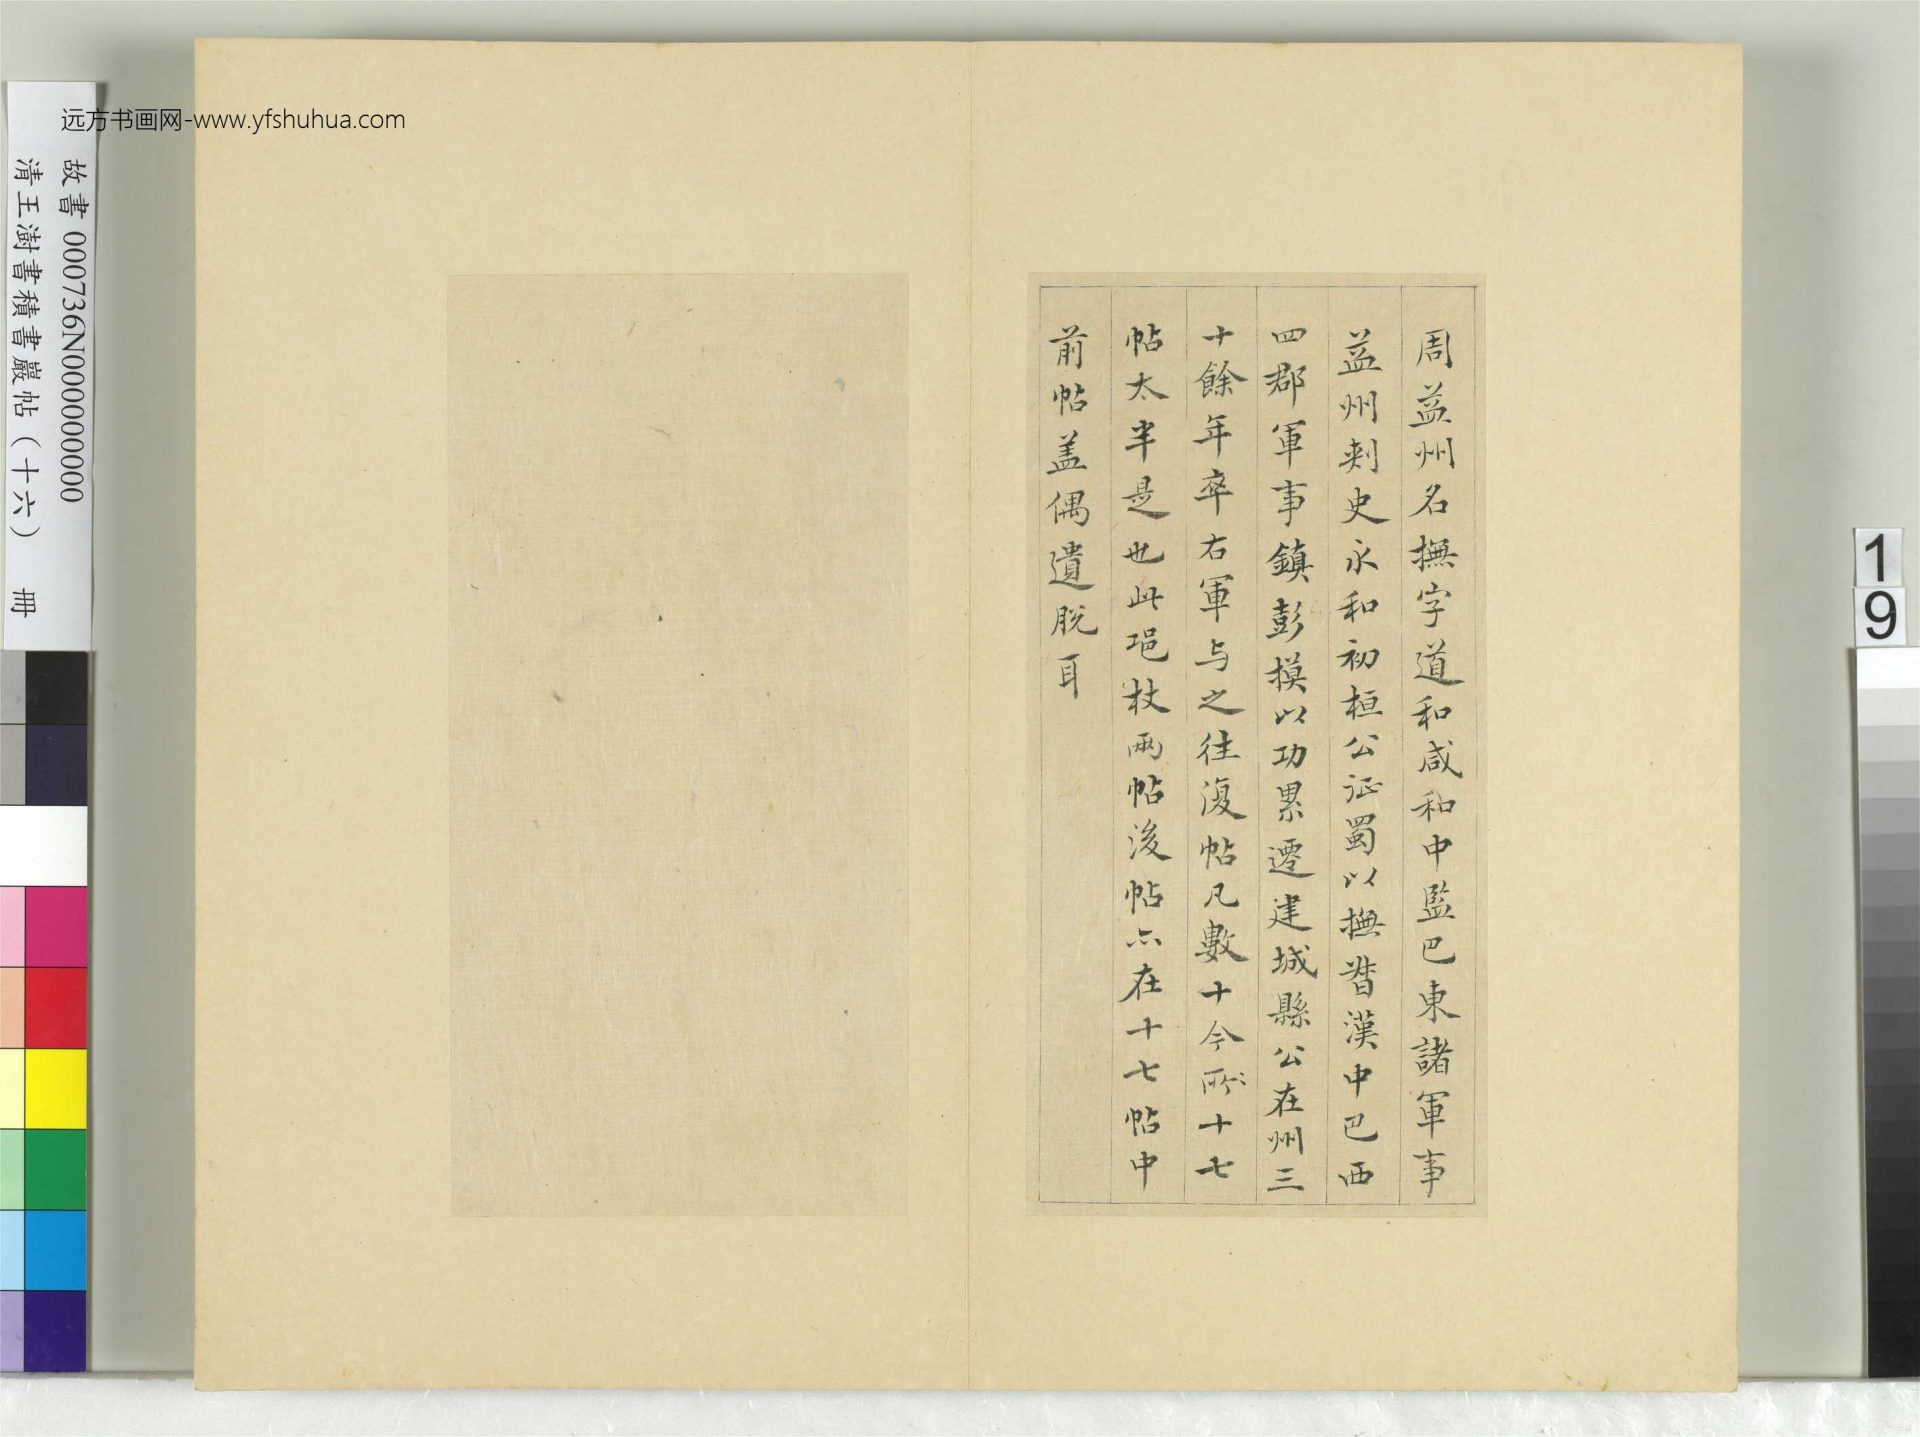 周益州名撫字道和咸和中監巴東諸軍事
益州刺史永和初桓公征蜀以撫督漢中巴西
四郡軍事鎮彭摸以功累遷建城縣公在州三
十餘年卒右軍与之往復帖凡數十今所十七
帖太半是也此邛杖兩帖後帖亦在十七帖中
前帖盖偶遺脫耳
远方书画网-www.yfshuhua.com
故書 000736N000000000
清王澍書積書巖帖（十六） 冊
1
9